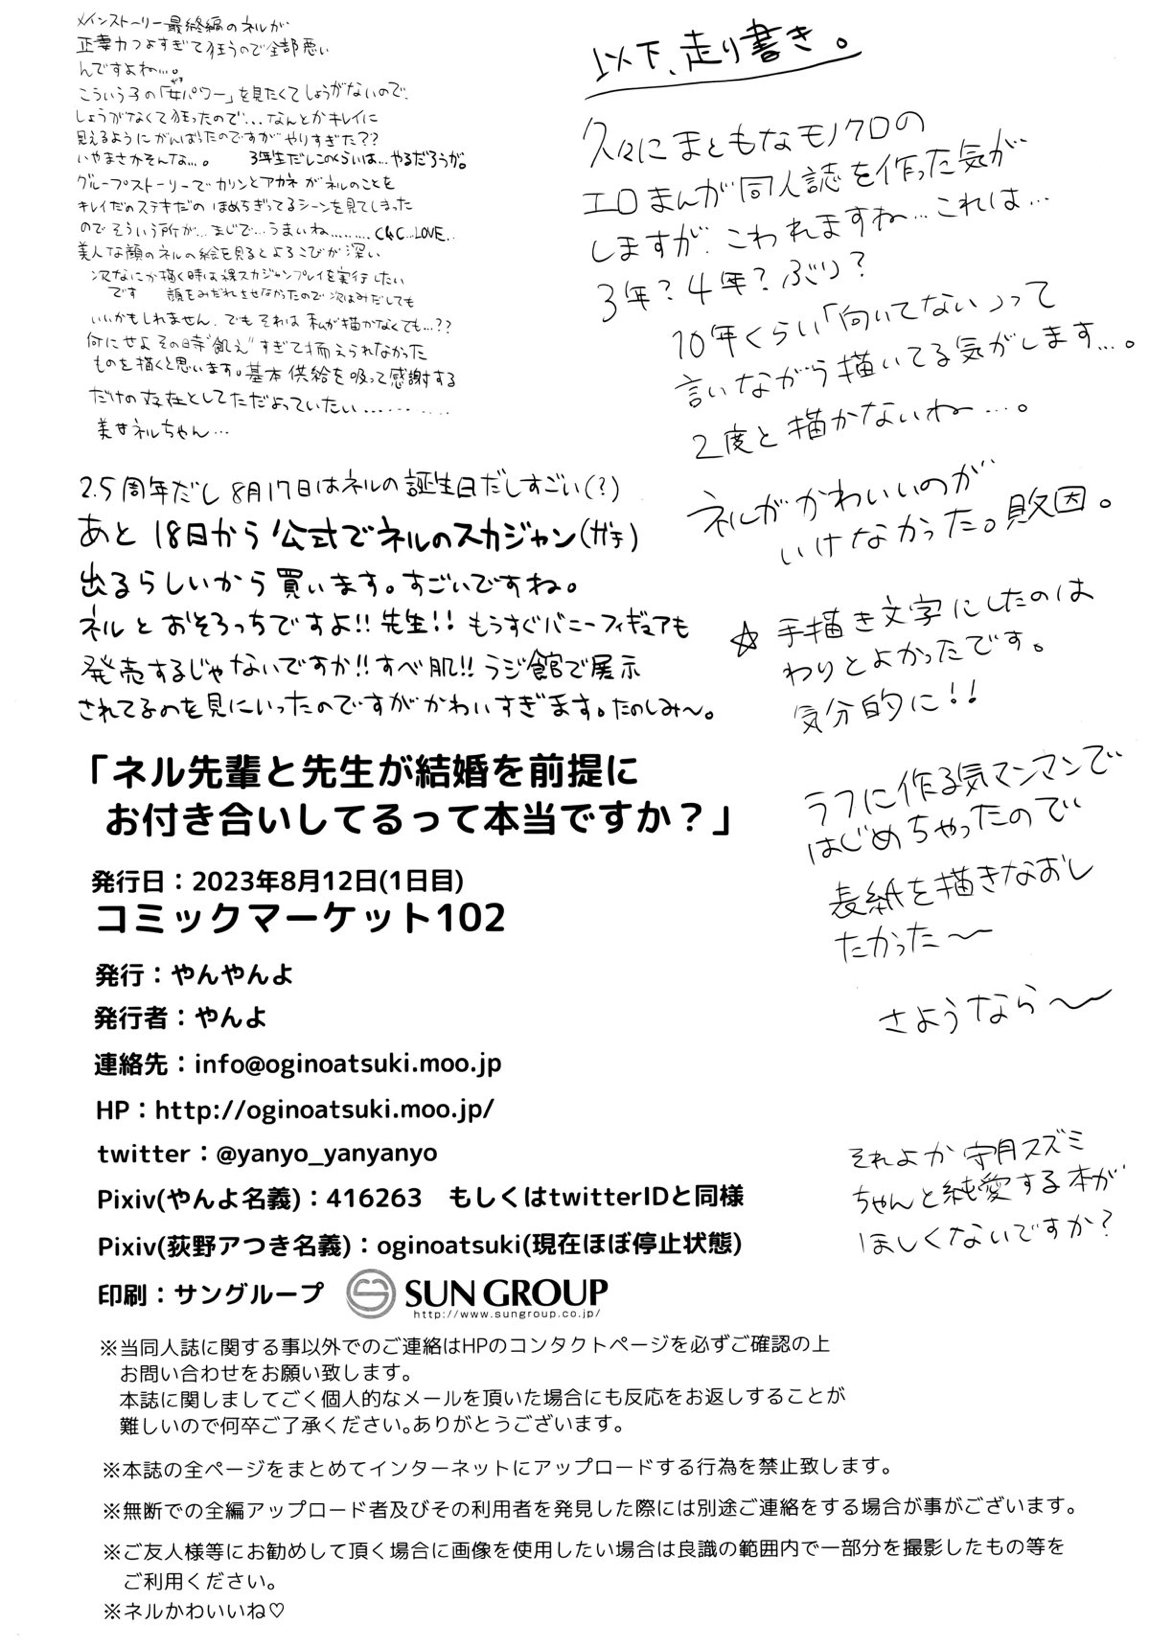 以下、走り書き。
久々にまともなモノクロの
エロまんが同人誌を作った気が
しますが、こわれますね…これは…
3年?4年?ぶり?
10年くらい「向いてない」って
言いながら描いてる気がします…。
2度と描かないね…。
ネルがかわいいのが
いけなかった。敗因。
☆手描き文字にしたのは
わりとよかったです。
気分的に!!
ラフに作る気マンマンで
はじめちゃったので
表紙を描きなおし
たかった〜
さようなら〜
それよか守月スズミ
ちゃんと純愛する本が
ほしくないですか?
メインストーリー最終編のネルが
正妻力つよすぎて狂うので全部悪い
んですよね…。
こういう子の「女パワー」を見たくてしょうがないので、
しょうがなくて狂ったので…なんとかキレイに
見えるようにがんばったのですがやりすぎた??
いやまさかそんな…。 3年生だしこのくらいは…やるだろうが。
グループストーリーでカリンとアカネがネルのことを
キレイだのステキだのほめちぎってるシーンを見てしまった
のでそういう所が…まじで…うまいね………C&C…LOVE…
美人な顔のネルの絵を見るとよろこびが深い
次なにか描く時は裸スカジャンプレイを実行したい
です 顔をみだれさせなかったので次はみだしても
いいかもしれません。でもそれは私が描かなくても…??
何にせよその時"飢え"すぎて耐えられなかった
ものを描くと思います。基本供給を吸って感謝する
だけの存在としてただよっていたい…………
美女ネルちゃん…
2.5周年だし8月17日はネルの誕生日だしすごい(?)
あと18日から公式でネルのスカジャン(ガチ)
出るらしいから買います。すごいですね。
ネルとおそろっちですよ!!先生!!もうすぐバニーフィギュアも
発売するじゃないですか!!すべ肌!!ラジ館で展示
されてるのを見にいったのですがかわいすぎます。たのしみ〜。
「ネル先輩と先生が結婚を前提に
お付き合いしてるって本当ですか?」
発行日:2023年8月12日(1日目)
コミックマーケット102
発行:やんやんよ
発行者:やんよ
連絡先:info@oginoatsuki.moo.jp
HP:http://oginoatsuki.moo.jp/
twitter:@yanyo_yanyanyo
Pixiv(やんよ名義):416263 もしくはtwitterIDと同様
Pixiv(荻野アつき名義):oginoatsuki(現在ほぼ停止状態)
印刷:サングループ SUN GROUP
http://www.sungroup.co.jp/
※当同人誌に関する事以外でのご連絡はHPのコンタクトページを必ずご確認の上
お問い合わせをお願い致します。
本誌に関しましてごく個人的なメールを頂いた場合にも反応をお返しすることが
難しいので何卒ご了承ください。ありがとうございます。
※本誌の全ページをまとめてインターネットにアップロードする行為を禁止致します。
※無断での全編アップロード者及びその利用者を発見した際には別途ご連絡をする場合が事がございます。
※ご友人様等にお勧めして頂く場合に画像を使用したい場合は良識の範囲内で一部分を撮影したもの等を
ご利用ください。
※ネルかわいいね♡